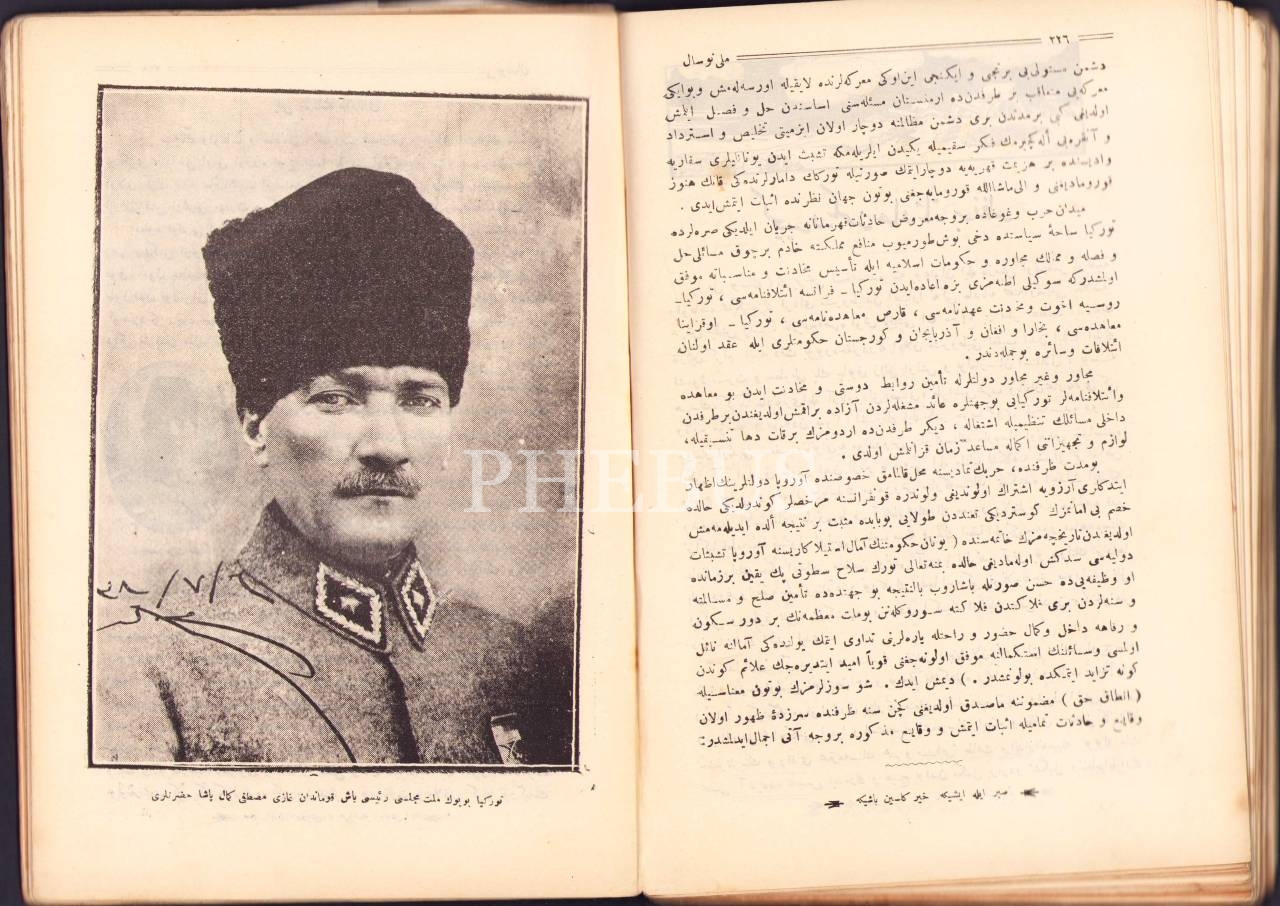 ٢٢٦
ملی نوسال
دشمن مستولی‌یی برنجی و ایکنجی این‌اوکی معرکه‌لرنده لایقیله اورسه‌له‌مش وبوایکی
معرکه‌یی متعاقب بر طرفدن‌ده ارمنستان مسئله‌سنی اساسندن حل و فصل ایلمش
اولدیغی کبی برمدتدن بری دشمن مظالمنه دوچار اولان ازمیتی تخلیص و استرداد
و آنقره‌یی اله کچیرمك فکر سقیمیله یکیدن ایلریله‌مکه تشبث ایدن یونانلیلری سقاریه
وادیسنده بر هزیمت قهریه‌یه دوچار ایتمك صورتیله تورکك دامارلرنده‌کی قانك هنوز
قورومادیغنی و الی ماشاالله قورومایه‌جغنی بوتون جهان نظرنده اثبات ایتمش ایدی .
میدان حرب وغوغاده بروجه‌معروض حادثات قهرمانانه جریان ایلدیکی صره‌لرده
تورکیا ساحهٔ سیاستده دخی بوش طورمیوب منافع مملکته خادم برچوق مسائلی حل
و فصله و ممالك مجاوره و حکومات اسلامیه ایله تأسیس مخادنت و مناسباته موفق
اولمشدرکه سوکیلی اطنه‌مزی بزه اعاده‌ایدن تورکیا ـ فرانسه ائتلافنامه‌سی ، تورکیا ـ
روسیه اخوت ومخادنت عهدنامه‌سی ، قارص معاهده‌نامه‌سی ، تورکیا ـ اوقراینا
معاهده‌سی ، بخارا و افغان و آذربایجان و کورجستان حکومتلری ایله عقد اولنان
ائتلافات وسائره بوجمله‌دندر .
مجاور وغیر مجاور دولتلرله تأمین روابط دوستی و مخادنت ایدن بو معاهده
وائتلافنامه‌لر تورکیایی بوجهتلره عائد مشغله‌لردن آزاده براقمش اولدیغندن برطرفدن
داخلی مسائلك تنظیمیله اشتغاله ، دیکر طرفدن‌ده اردومزك برقات دها تنسیقیله ،
لوازم و تجهیزاتنی اکماله مساعد زمان قزانلمش اولدی .
بومدت ظرفنده ، حربك تمادیسنه محل قالمامق خصوصنده آوروپا دولتلرینك اظهار
ایتدکلری آرزویه اشتراك اولوندیغی ولوندره قونفرانسنه مرخصلر کوندرلدیکی حالده
خصم بی امانمزك کوستردیکی تعنددن طولایی بوبابده مثبت بر نتیجه الده ایدیله‌مه‌مش
اولدیغندن تاریخچه‌مزك خاتمه‌سنده ( یونان حکومتنك آمال استیلاکاریسنه آوروپا تشبثات
دولیه‌سی سدکش اوله‌مادیغی حالده بمنه‌تعالی تورك سلاح سطوتی پك یقین برزمانده
او وظیفه‌یی‌ده حسن صورتله باشاروب بالنتیجه بو جهتده‌ده تأمین صلح و مسالمته
و سنه‌لردن بری فلاکتدن فلاکته سوروکله‌نن بومات معظمه‌نك بر دور سکون
و رفاهه داخل وکمال حضور و راحتله یاره‌لرینی تداوی ایتمك یولنده‌کی آمالنه نائل
اولمسی وسائلنك استکمالنه موفق اولونه‌جغنی قویاً امید ایتدیره‌جك علائم کوندن
کونه تزاید ایتمکده بولونمشدر . ) دیمش ایدك . شو سوزلرمزك بوتون معناسیله
( انطاق حق ) مضموننه ماصدق اولدیغنی کچن سنه ظرفنده سرزدهٔ ظهور اولان
وقایع و حادثات تمامیله اثبات ایتمش و وقایع مذکوره بروجه آتی اجمال ایدلمشدر :
صبر ایله ایشیکه خیر کلسین باشیکه
تورکیا بویوك ملت مجلسی رئیسی باش قوماندان غازی مصطفی کمال پاشا حضرتلری
PHEBUS